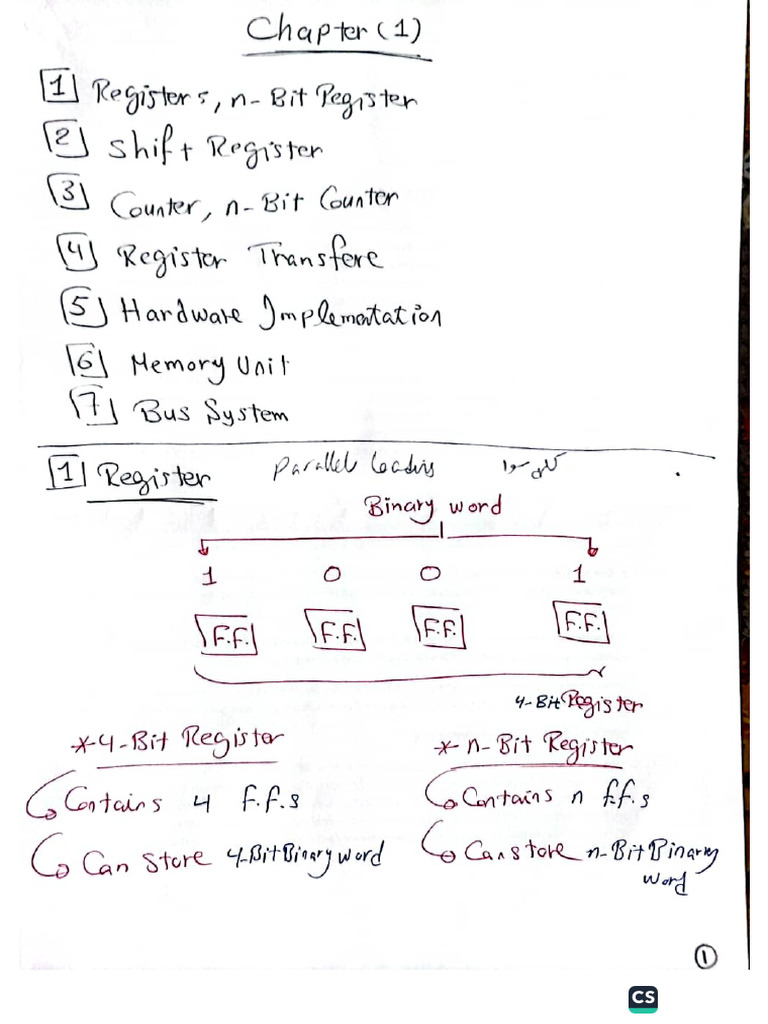 Chapter (1)
1 Registers, n-Bit Register
2 Shift Register
3 Counter, n-Bit Counter
4 Register Transfere
5 Hardware Implementation
6 Memory Unit
7 Bus System
1 Register Parallel Loading كله سوا
Binary word
1 0 0 1
F.F. F.F. F.F. F.F.
4-Bit Register
*4-Bit Register * n-Bit Register
Contains 4 F.F.s Contains n F.F.s
Can Store 4-Bit Binary word Can store n-Bit Binary
word
1
CS